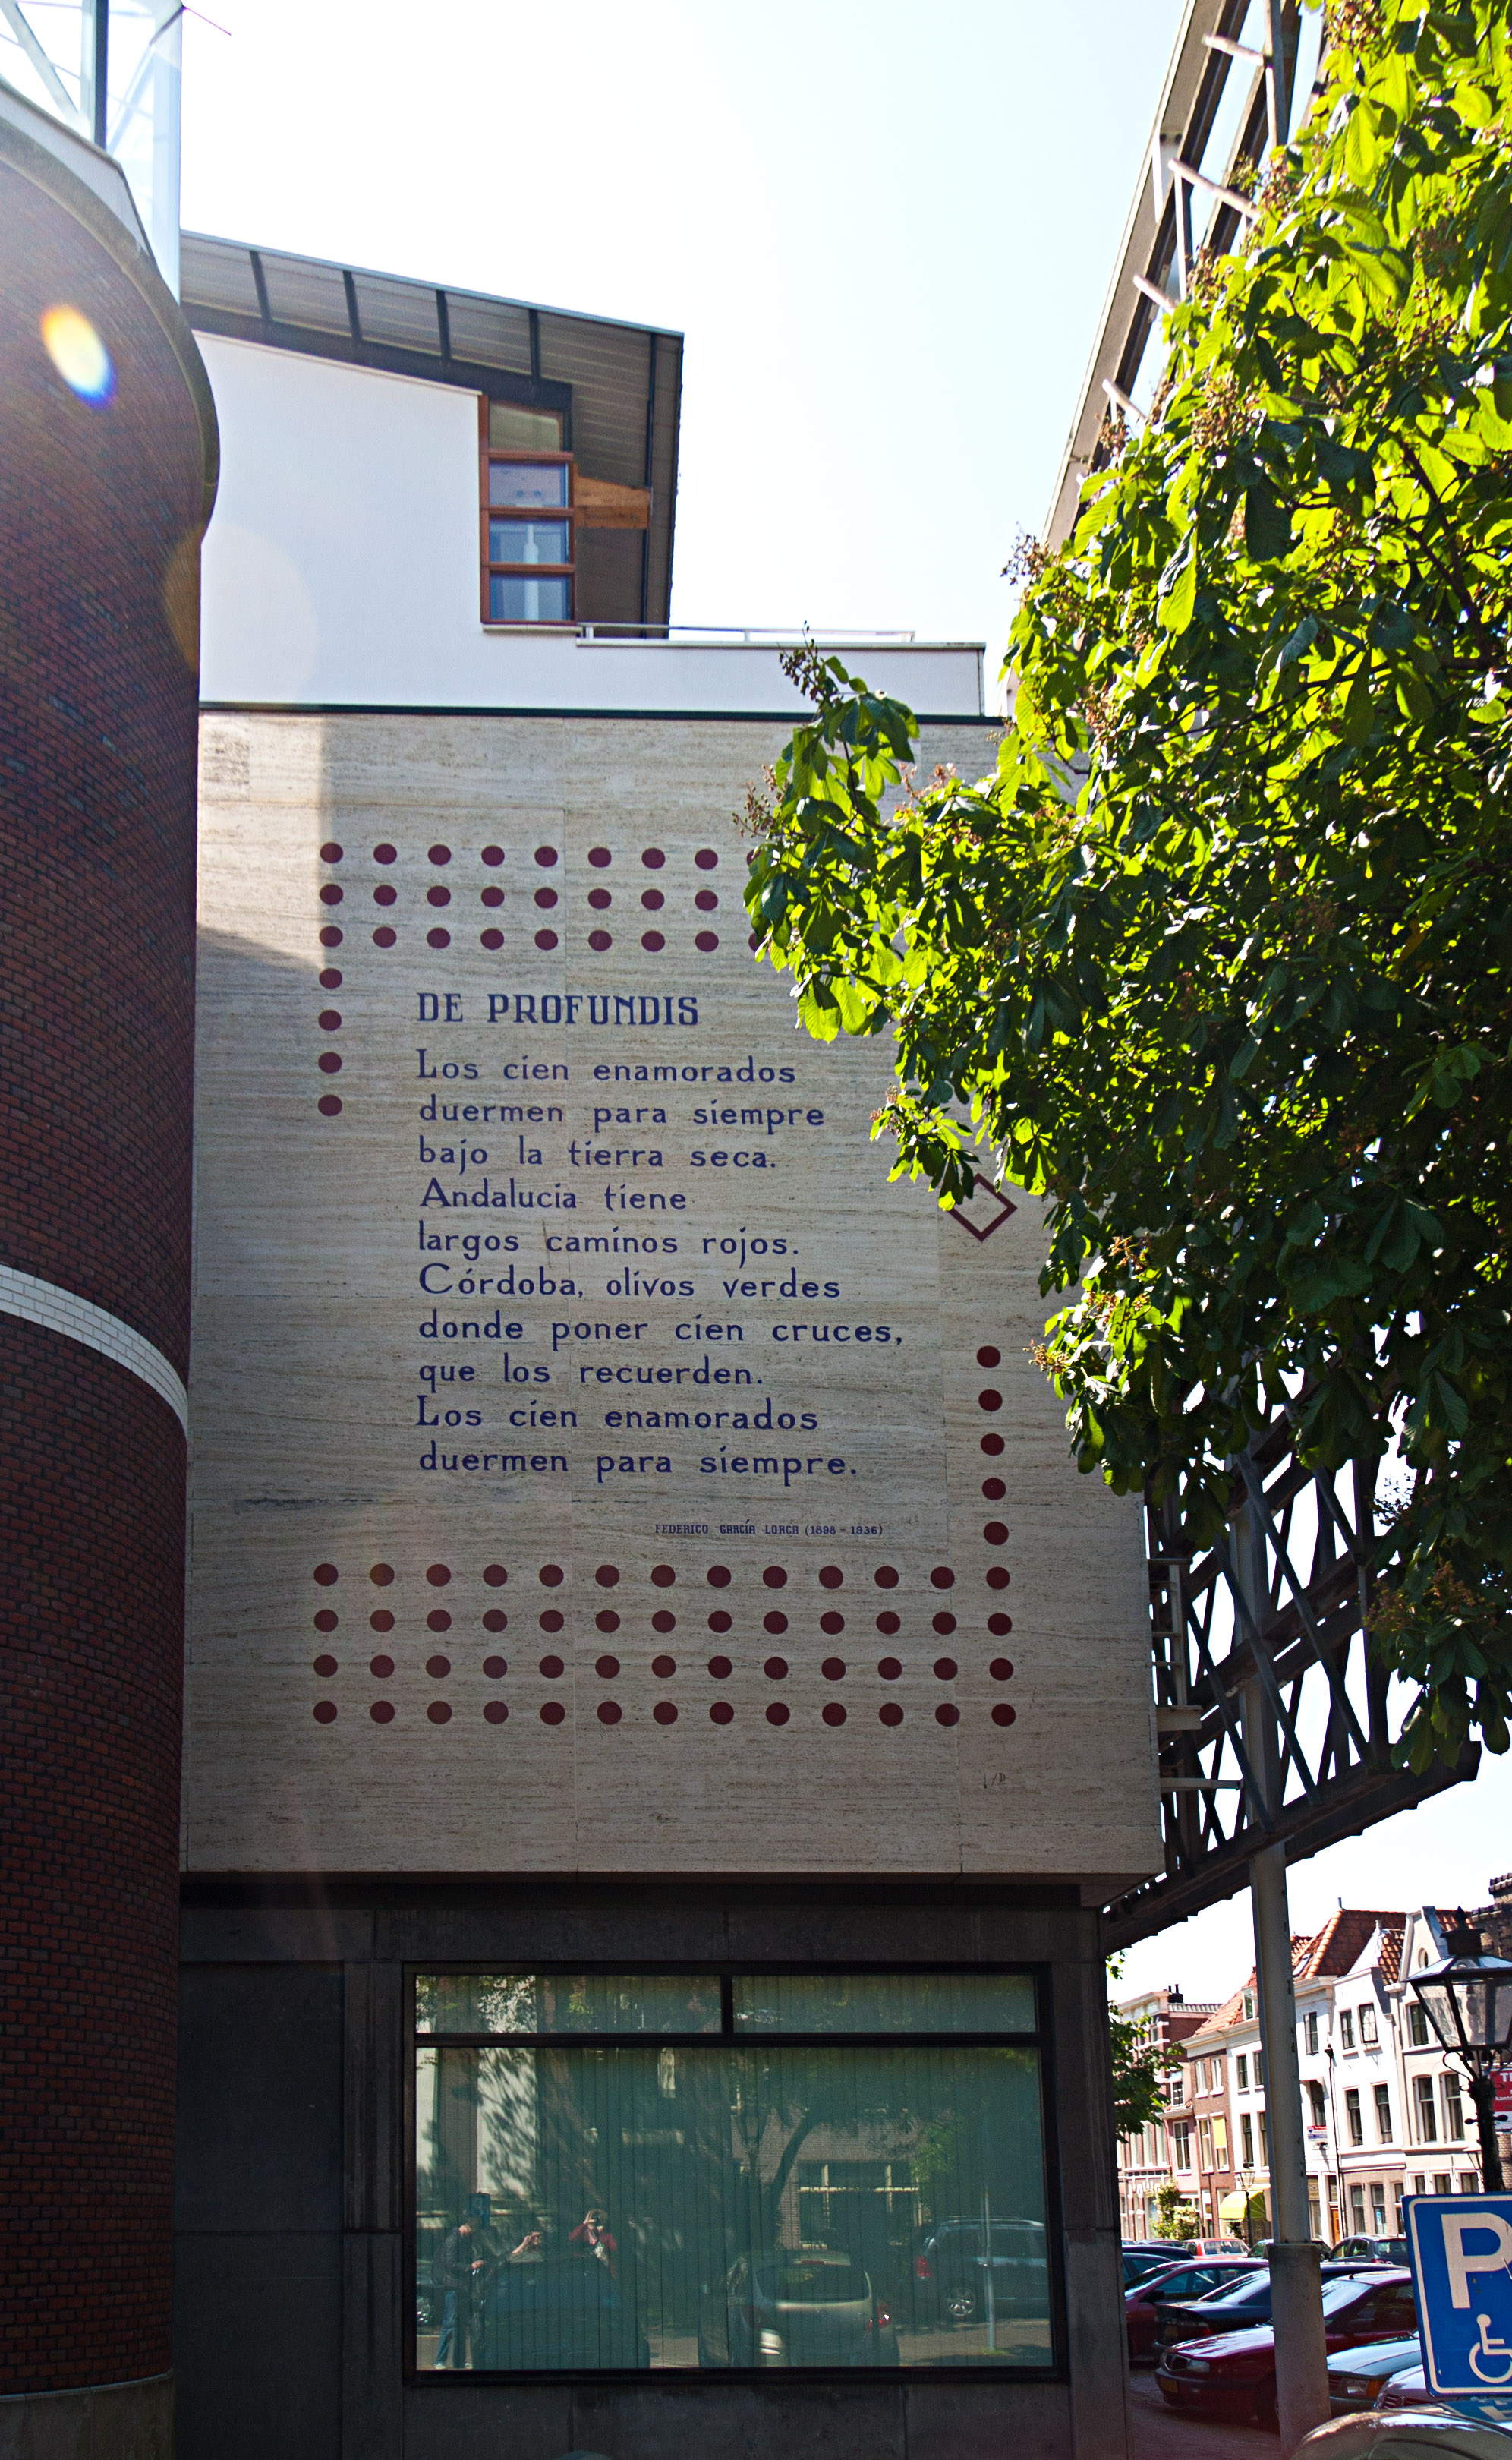 DE PROFUNDIS
Los cien enamorados
duermen para siempre
bajo la tierra seca.
Andalucía tiene
largos caminos rojos.
Córdoba, olivos verdes
donde poner cien cruces,
que los recuerden.
Los cien enamorados
duermen para siempre.
FEDERICO GARCÍA LORCA (1898 - 1936)
P